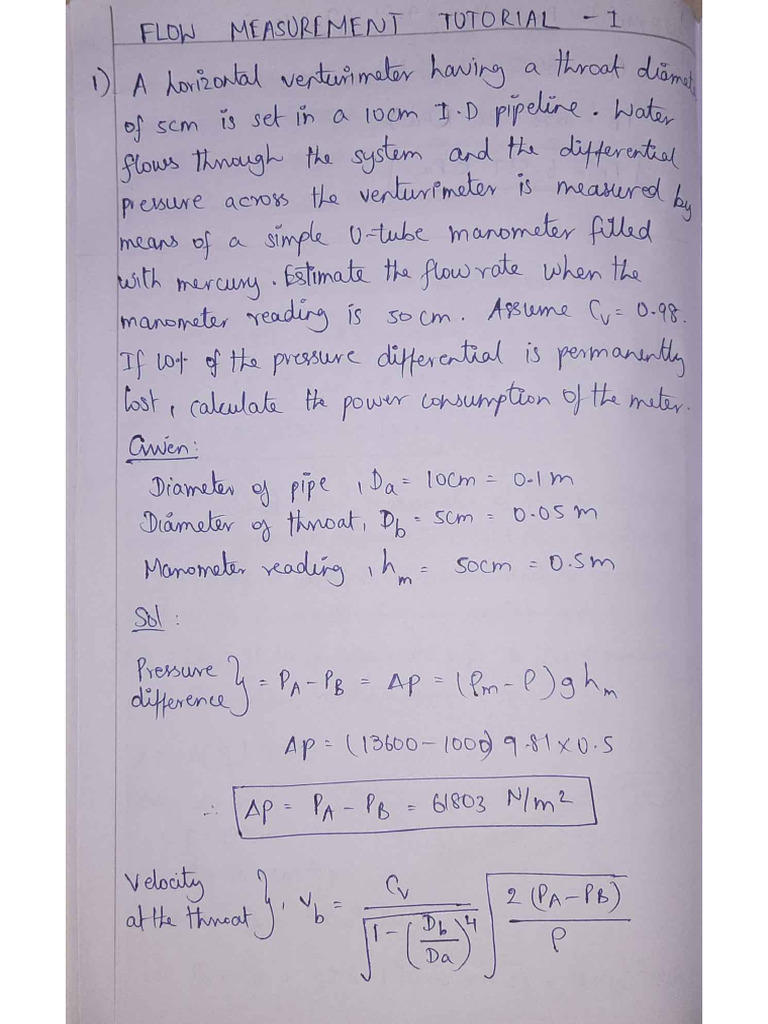 FLOW MEASUREMENT TUTORIAL - 1
1) A horizontal venturimeter having a throat diamet
of 5cm is set in a 10cm I.D pipeline. Water
flows through the system and the differential
pressure across the venturimeter is measured by
means of a simple U-tube manometer filled
with mercury. Estimate the flow rate when the
manometer reading is 50 cm. Assume Cv = 0.98.
If 10% of the pressure differential is permanently
lost, calculate the power consumption of the meter.
Given:
Diameter of pipe, Da = 10cm = 0.1 m
Diameter of throat, Db = 5cm = 0.05 m
Manometer reading, hm = 50cm = 0.5m
Sol:
Pressure difference } = PA - PB = ΔP = (ρm - ρ) g hm
ΔP = (13600 - 1000) 9.81 × 0.5
∴ ΔP = PA - PB = 61803 N/m²
Velocity at the throat }, Vb = Cv / √(1 - (Db/Da)⁴) √(2 (PA - PB) / ρ)